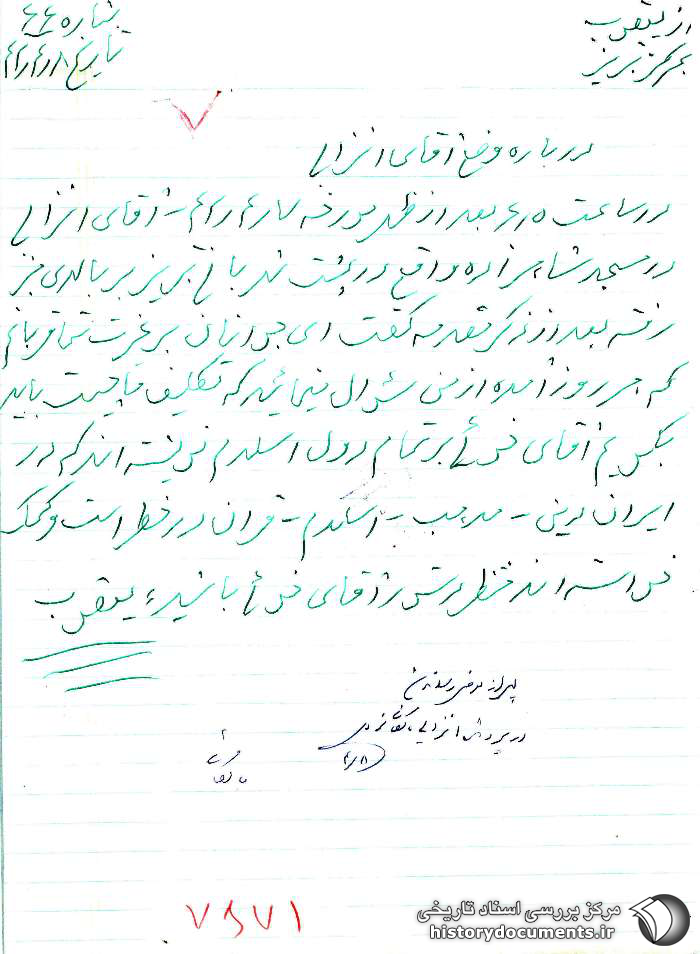 از یعقوب
بمرکز تبریز
شماره ۴۴
تاریخ
درباره وضع آقای انزابی
در ساعت بعد از ظهر مورخه آقای انزابی
در مسجد شاهزاده واقع در پشت شهر باغ تبریز بر بالای منبر
رفته بعد از ذکر مقدمه گفت ای جوانان بر غیرت شما قربانم
که هر روز آمده از من سئوال مینمائید که تکلیف ما چیست باید
بگویم آقای خوئی بر تمام دول اسلام نوشته اند که در
ایران دین - مذهب - اسلام - قرآن در خطر است و کمک
خواسته اند منتظر دستور آقای خوئی باشید، یعقوب
پس از عرض
در پرونده انزابی
بایگانی
۷۶۷۱
مرکز بررسی اسناد تاریخی
historydocuments.ir